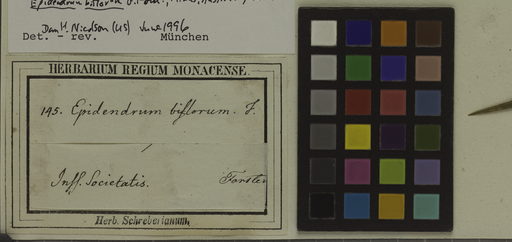 Epidendrum biflorum G. Forst.
Dan H. Nicolson (US) June 1996
Det. - rev. München
HERBARIUM REGIUM MONACENSE.
145. Epidendrum biflorum. F.
Inss. Societatis. Forster
Herb. Schreberianum.